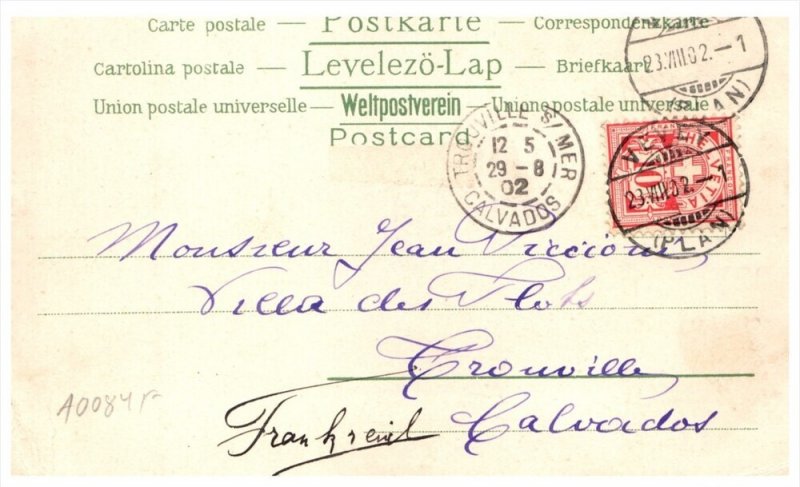 Carte postale — Postkarte — Correspondenzkarte
Cartolina postale — Levelezö-Lap — Briefkaart
Union postale universelle — Weltpostverein — Unione postale universale
Postcard
23.VIII.02.–1
(PLAN)
TROUVILLE S/MER
12 5
29 - 8
02
CALVADOS
HELVETIA
10
VEVEY
23.VIII.02.–1
(PLAN)
Monsieur Jean
Villa des Flots
Trouville
Calvados
Frankreich
A0084